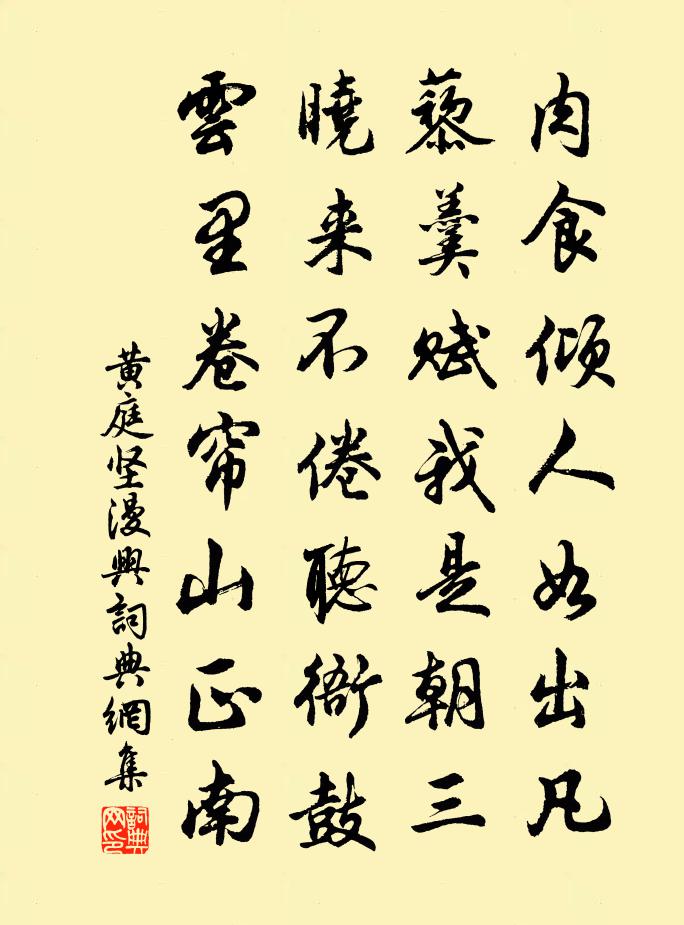 肉食傾人如出凡
藜羹賦我是朝三
曉来不倦聽衙鼓
雲里卷帘山正南
黄庭坚漫興詞典網集
詞典网印